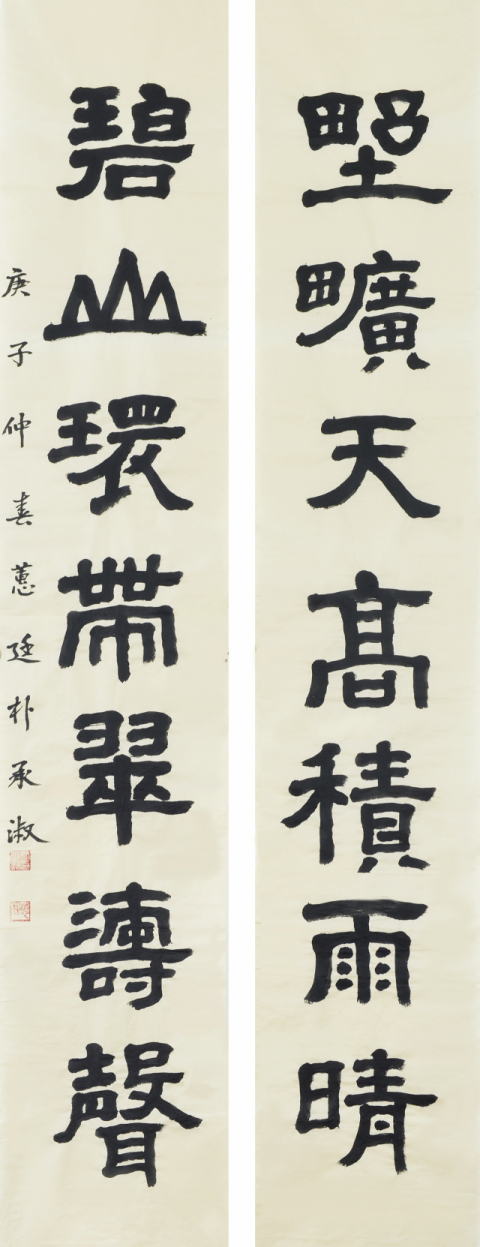 野曠天高積雨晴
碧山環帶翠濤聲
庚子仲春蕙廷朴承淑